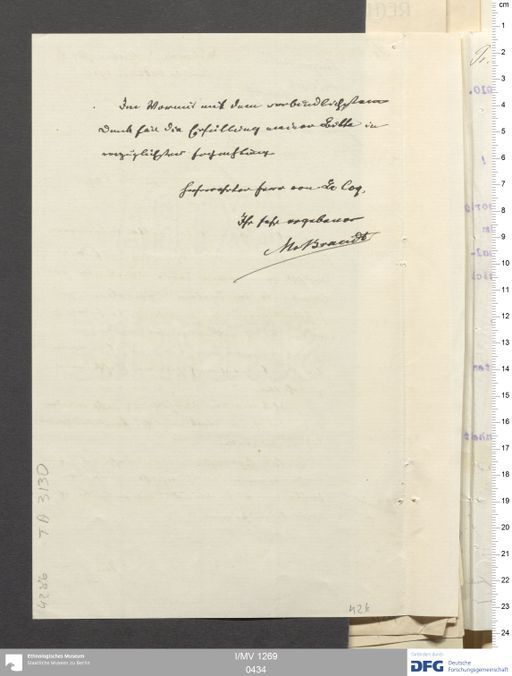 Im Voraus mit dem verbindlichsten
Dank für die Erfüllung meiner Bitte in
vorzüglichster Hochachtung
hochverehrter Herr von Le Coq,
Ihr sehr ergebener
M. v. Brandt
4286 TA 3130
426
Ethnologisches Museum
Staatliche Museen zu Berlin
I/MV 1269
0434
Gefördert durch
DFG Deutsche
Forschungsgemeinschaft